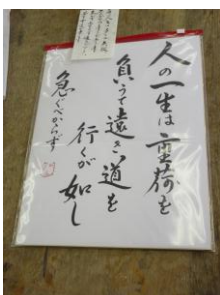 人の一生は重荷を
負うて遠き道を
行くが如し
急ぐべからず